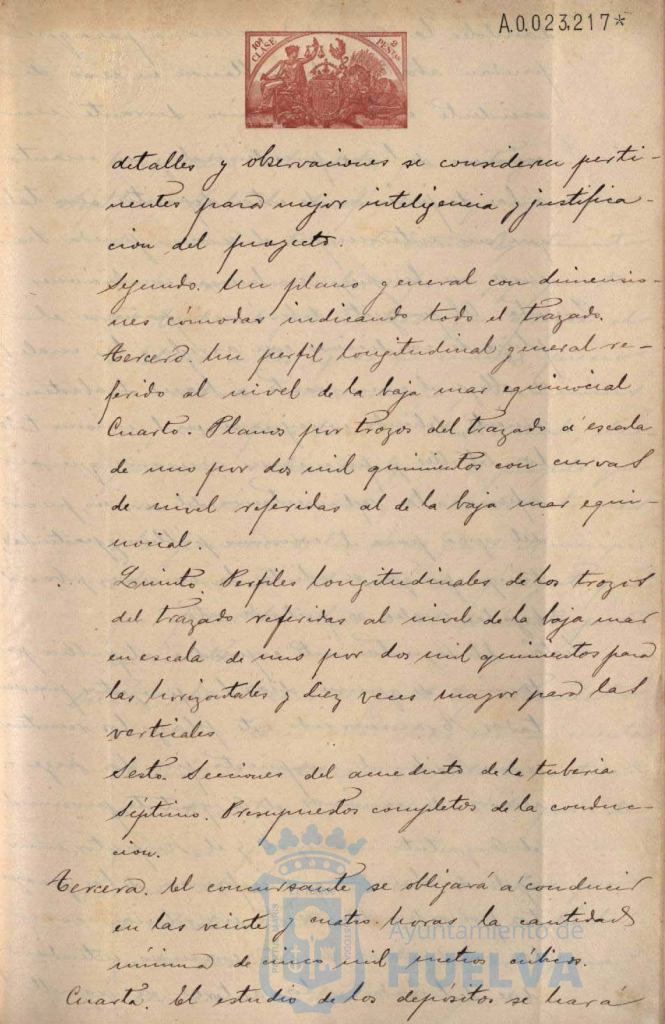 A.0.023.217*
10ª CLASE
2 PESTAS
detalles y observaciones se consideren perti-
nentes para mejor inteligencia y justifica-
cion del proyecto.
Segundo. Un plano general con dimensio-
nes cómodas indicando todo el trazado.
Tercero. Un perfil longitudinal general re-
ferido al nivel de la baja mar equinocial
Cuarto. Planos por trozos del trazado á escala
de uno por dos mil quinientos con curvas
de nivel referidas al de la baja mar equi-
nocial.
Quinto. Perfiles longitudinales de los trozos
del trazado referidas al nivel de la baja mar
en escala de uno por dos mil quinientos para
las horizontales y diez veces mayor para las
verticales
Sesto. Secciones del acueducto de la tuberia
Séptimo. Presupuestos completos de la conduc-
cion.
Tercera. El concursante se obligará á conducir
en las veinte y cuatro horas la cantidad
mínima de cinco mil metros cúbicos.
Cuarta. El estudio de los depósitos se hará
Ayuntamiento de
HUELVA